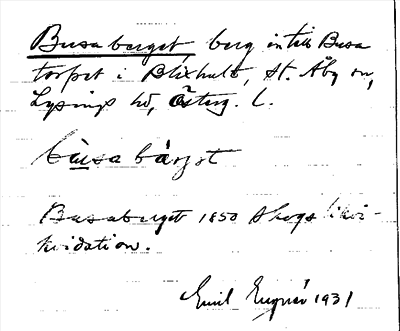 Busaberget, berg intill Busa
torpet i Blixhult, St. Åby sn,
Lysings hd, Österg. l.
bùsa bàrjet
Busaberget 1850 Skogs likvi-
kvidation.
Emil 1931